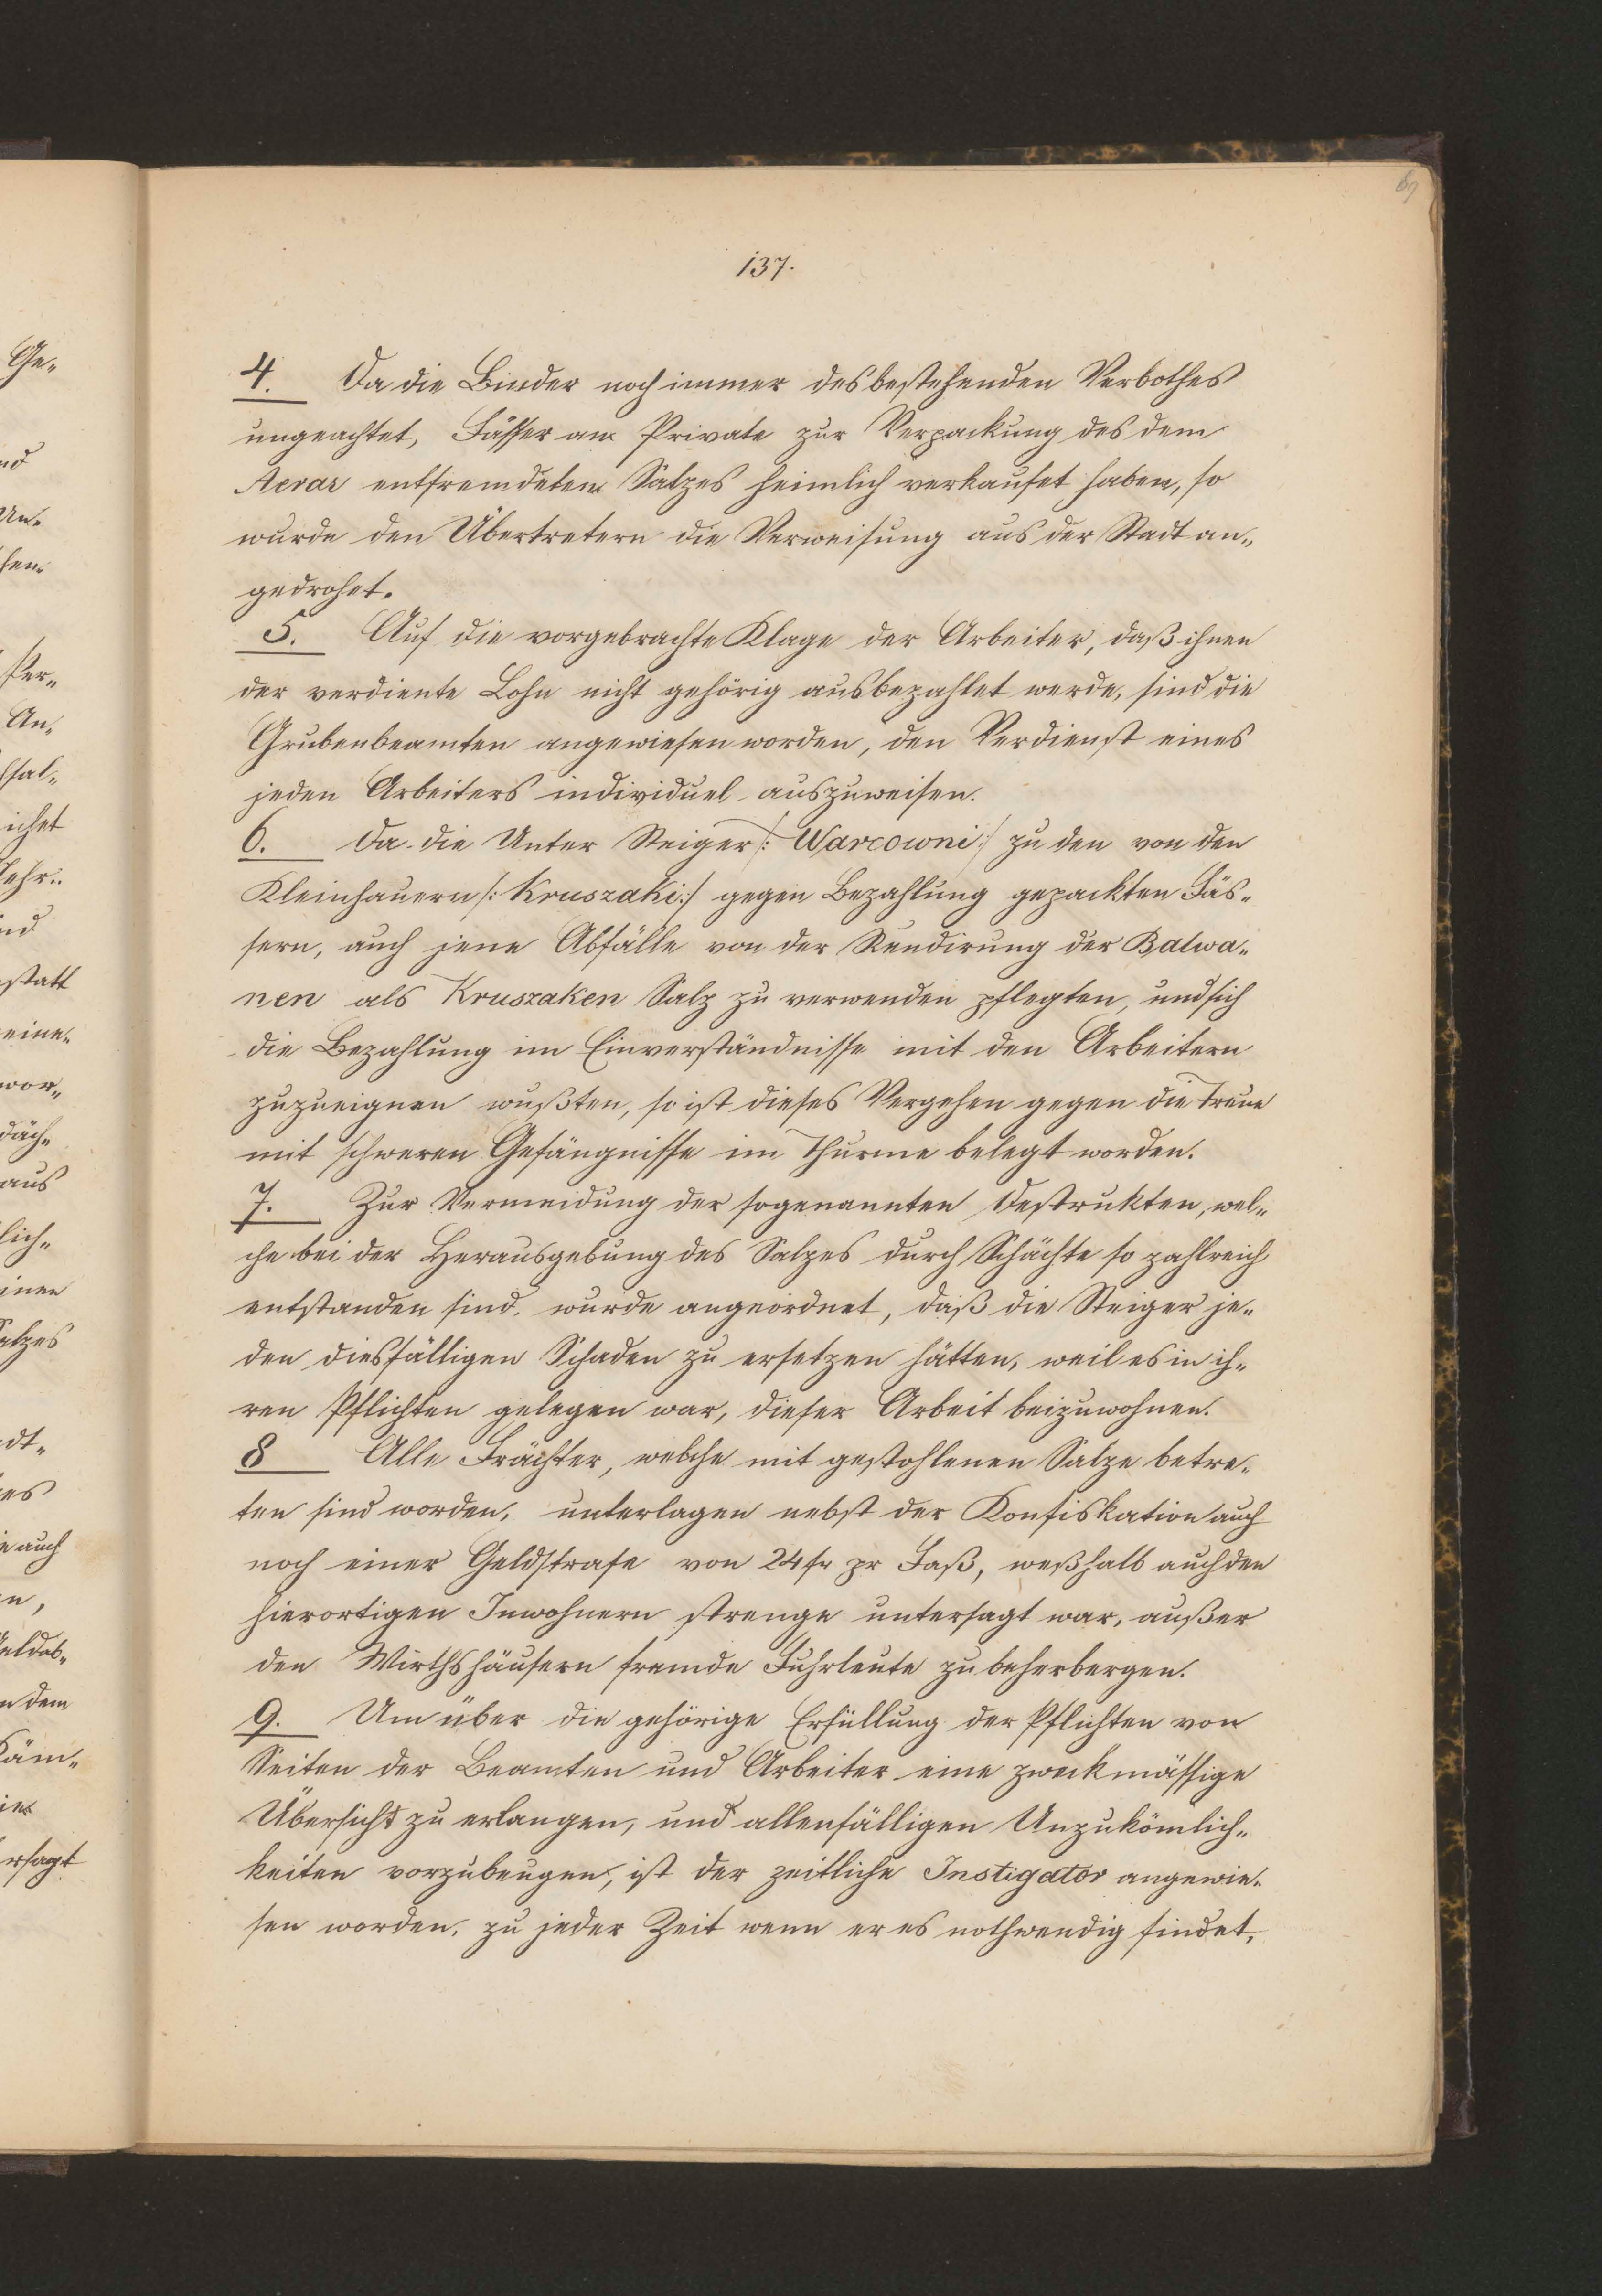 69
137.
4. Da die Binder noch immer des bestehenden Verbothes
ungeachtet, Fässer an Private zur Verpackung des dem
Aerar entfremdeten Salzes heimlich verkaufet haben, so
wurde den Übertretern die Verweisung aus der Stadt an„
gedrohet.
5. Auf die vorgebrachte Klage der Arbeiter, daß ihnen
der verdiente Lohn nicht gehörig ausbezahlet werde, sind die
Grubenbeamten angewiesen worden, den Verdienst eines
jeden Arbeiters individuel auszuweisen.
6. Da die Unter Steiger /: Warcowni :/ zu den von den
Kleinhauern /: Kruszaki :/ gegen Bezahlung gepackten Fäs„
sern, auch jene Abfälle von der Rundirung der Balwa„
nen als Kruszaken Salz zu verwenden pflegten, und sich
die Bezahlung im Einverständnisse mit den Arbeitern
zuzueignen wußten, so ist dieses Vergehen gegen die Treue
mit schweren Gefängnisse im Thurme belegt worden.
7. Zur Vermeidung der sogenannten Destrukten, wel„
che bei der Herausgebung des Salzes durch Schächte so zahlreich
entstanden sind, wurde angeordnet, daß die Steiger je„
den diesfälligen Schaden zu ersetzen hätten, weil es in ih„
ren Pflichten gelegen war, dieser Arbeit beizuwohnen.
8 Alle Frächter, welche mit gestohlenen Salze betre„
ten sind worden, unterlagen nebst der Konfiskation auch
noch einer Geldstrafe von 24 fr pr Faß, weßhalb auch den
hierortigen Inwohnern strenge untersagt war, außer
den Wirthshäusern fremde Fuhrleute zu beherbergen.
9. Um über die gehörige Erfüllung der Pflichten von
Seiten der Beamten und Arbeiter eine zweckmässige
Übersicht zu erlangen, und allenfälligen Unzukömlich„
keiten vorzubeugen, ist der zeitliche Instigator angewie„
sen worden, zu jeder Zeit wenn er es nothwendig findet,